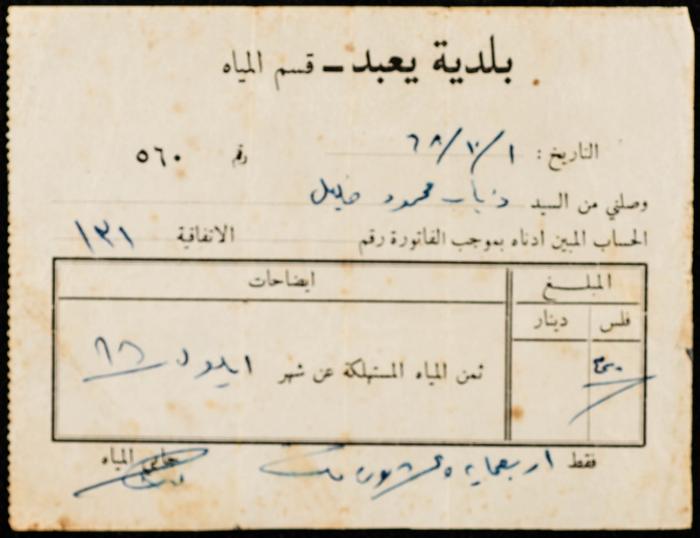 بلدية يعبد – قسم المياه
التاريخ : ١/١٠/٦٨ رقم ٥٦٠
وصلني من السيد ذياب محمود خليل
الحساب المبين أدناه بموجب الفاتورة رقم الاتفاقية ١٣١
المبلغ ايضاحات
فلس دينار
ثمن المياه المستهلكة عن شهر ايلول ٦٨
فقط اربعماية وعشرون فلس المياه